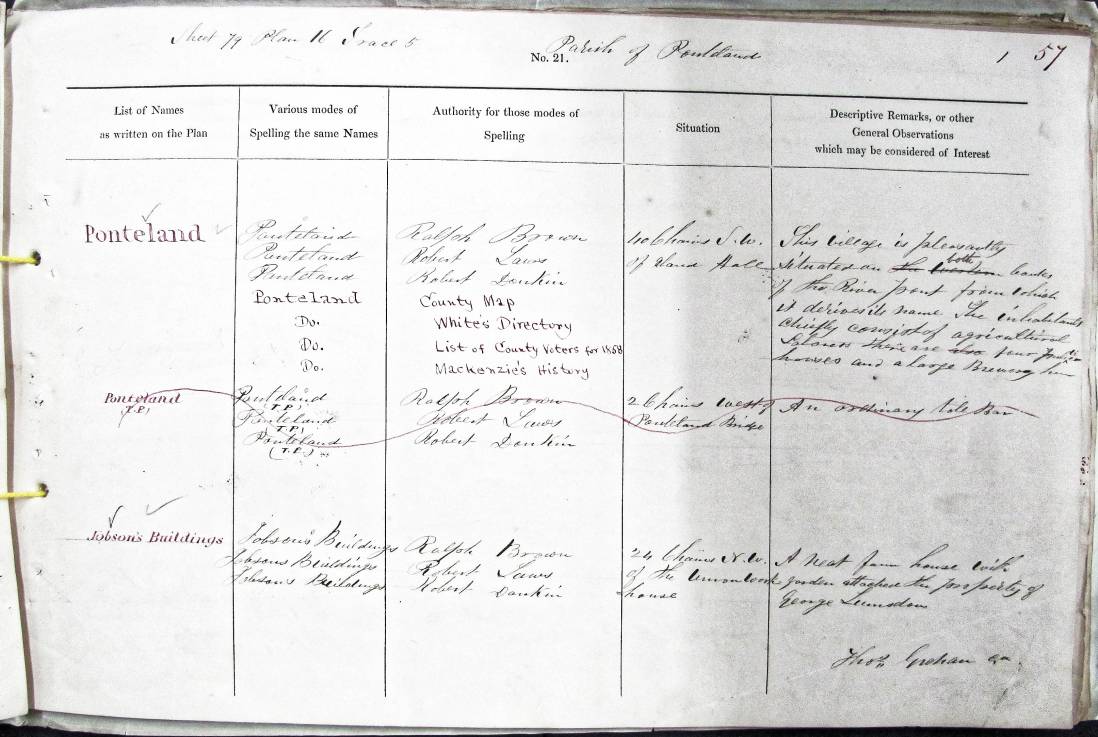 Sheet 79 Plan 16 Trace 5
No. 21. Parish of Ponteland
1 57
List of Names
as written on the Plan
Various modes of
Spelling the same Names
Authority for those modes of
Spelling
Situation
Descriptive Remarks, or other
General Observations
which may be considered of Interest
Ponteland
Ponteland
Ponteland
Ponteland
Ponteland
Do.
Do.
Do.
Ralph Brown
Robert Laws
Robert Donkin
County Map
White's Directory
List of County Voters for 1858
Mackenzie's History
40 Chains S.W.
of Hall
This village is pleasantly
situated on the both banks
of the River pont from which
it derives its name The inhabitants
chiefly consist of agricultural
Labourers there are also four
houses and a large Brewery
Ponteland
(T.P.)
Ponteland
(T.P.)
Ponteland
(T.P.)
Ponteland
(T.P.)
Ralph Brown
Robert Laws
Robert Donkin
2 Chains west of
Ponteland Bridge
An ordinary Tole Bar
Jobson's Buildings
Jobson's Buildings
Jobsons Buildings
Jobsons Buildings
Ralph Brown
Robert Laws
Robert Donkin
24 Chains N.W.
of the
house
A neat farm house with
garden attached the property of
George Lumsden
Thos. Grehan